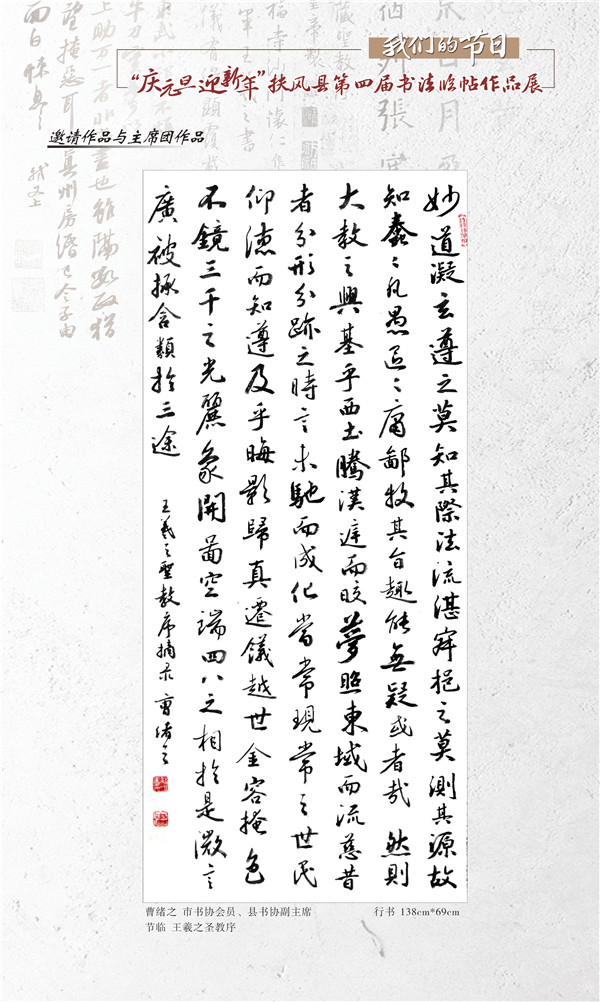 我们的节日
“庆元旦迎新年”扶风县第四届书法临帖作品展
邀请作品与主席团作品
妙道凝玄遵之莫知其際法流湛寂挹之莫測其源故
知蠢々凡愚區々庸鄙投其旨趣能無疑或者哉 然則
大教之興基乎西土騰漢庭而皎夢照東域而流慈昔
者分形分跡之時言未馳而成化當常現常之世民
仰德而知遵及乎晦影歸真遷儀越世金容掩色
不鏡三千之光麗象開圖空端四八之相於是微言
廣被拯含類於三途
王羲之聖教序摘录 曹绪之
曹绪之 市书协会员、县书协副主席
行书 138cm*69cm
节临 王羲之圣教序